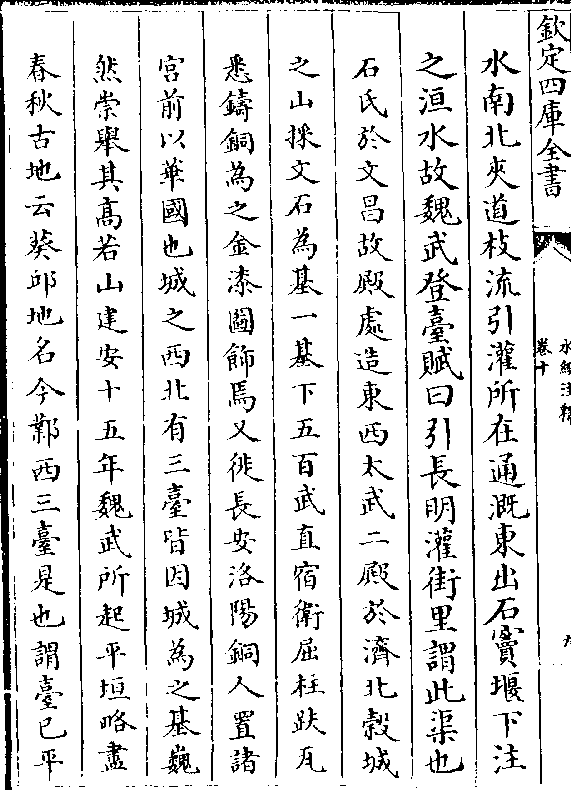 欽定四庫全書
水經注釋
卷十
九
水南北夾道枝流引灌所在通溉東出石竇堰下注
之洹水故魏武登臺賦曰引長明灌街里謂此渠也
石氏於文昌故殿處造東西太武二殿於濟北穀城
之山採文石為基一基下五百武直宿衛屈柱趺瓦
悉鑄銅為之金漆圖飾焉又徙長安洛陽銅人置諸
宮前以華國也城之西北有三臺皆因城為之基巍
然崇舉其髙若山建安十五年魏武所起平垣略盡
春秋古地云葵邱地名今鄴西三臺是也謂臺已平